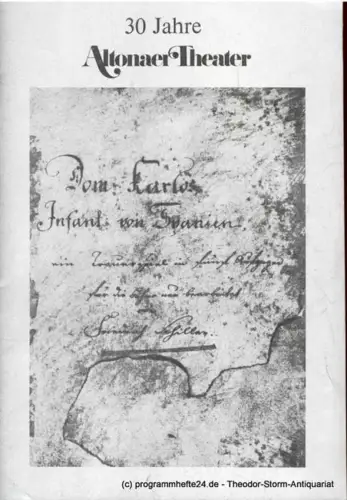 30 Jahre
Altonaer Theater
Dom Karlos
Infant von Spanien.
ein Trauerspiel in fünf Aufzügen
für die Bühne neu bearbeitet
Schiller.
(c) programmhefte24.de - Theodor-Storm-Antiquariat